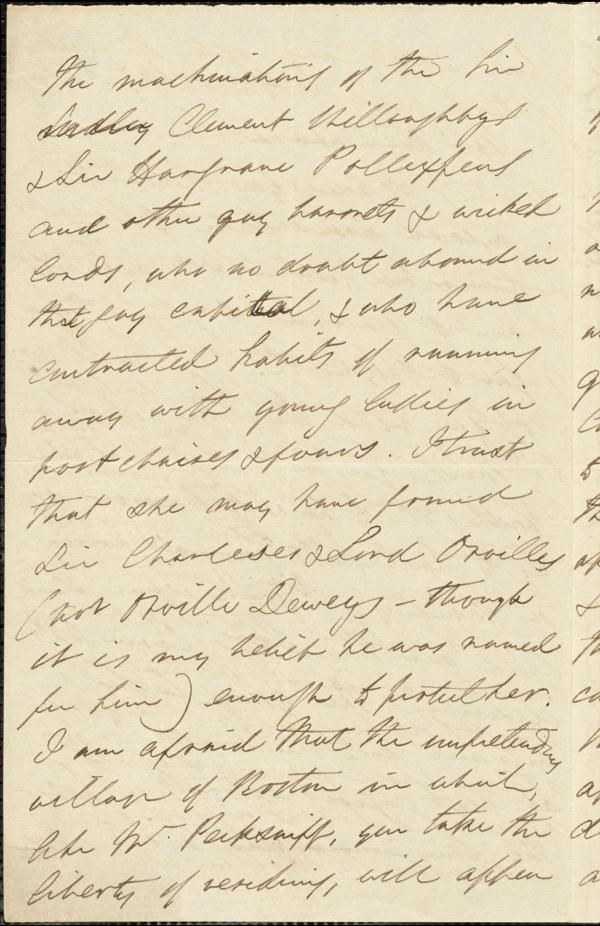 the machinations of the Sir
Clement Willoughbys
& Sir Hargrave Pollexfens
and other gay baronets & wicked
lords, who no doubt abound in
that gay capital, & who have
contracted habits of running
away with young ladies in
post chaises & fours. I trust
that she may have found
Sir Charleses & Lord Orvilles
(not Orville Deweys – though
it is my belief he was named
for him) enough to protect her.
I am afraid that the unpretending
village of Boston in which,
like Mr. Pecksniff, you take the
liberty of residing, will appear